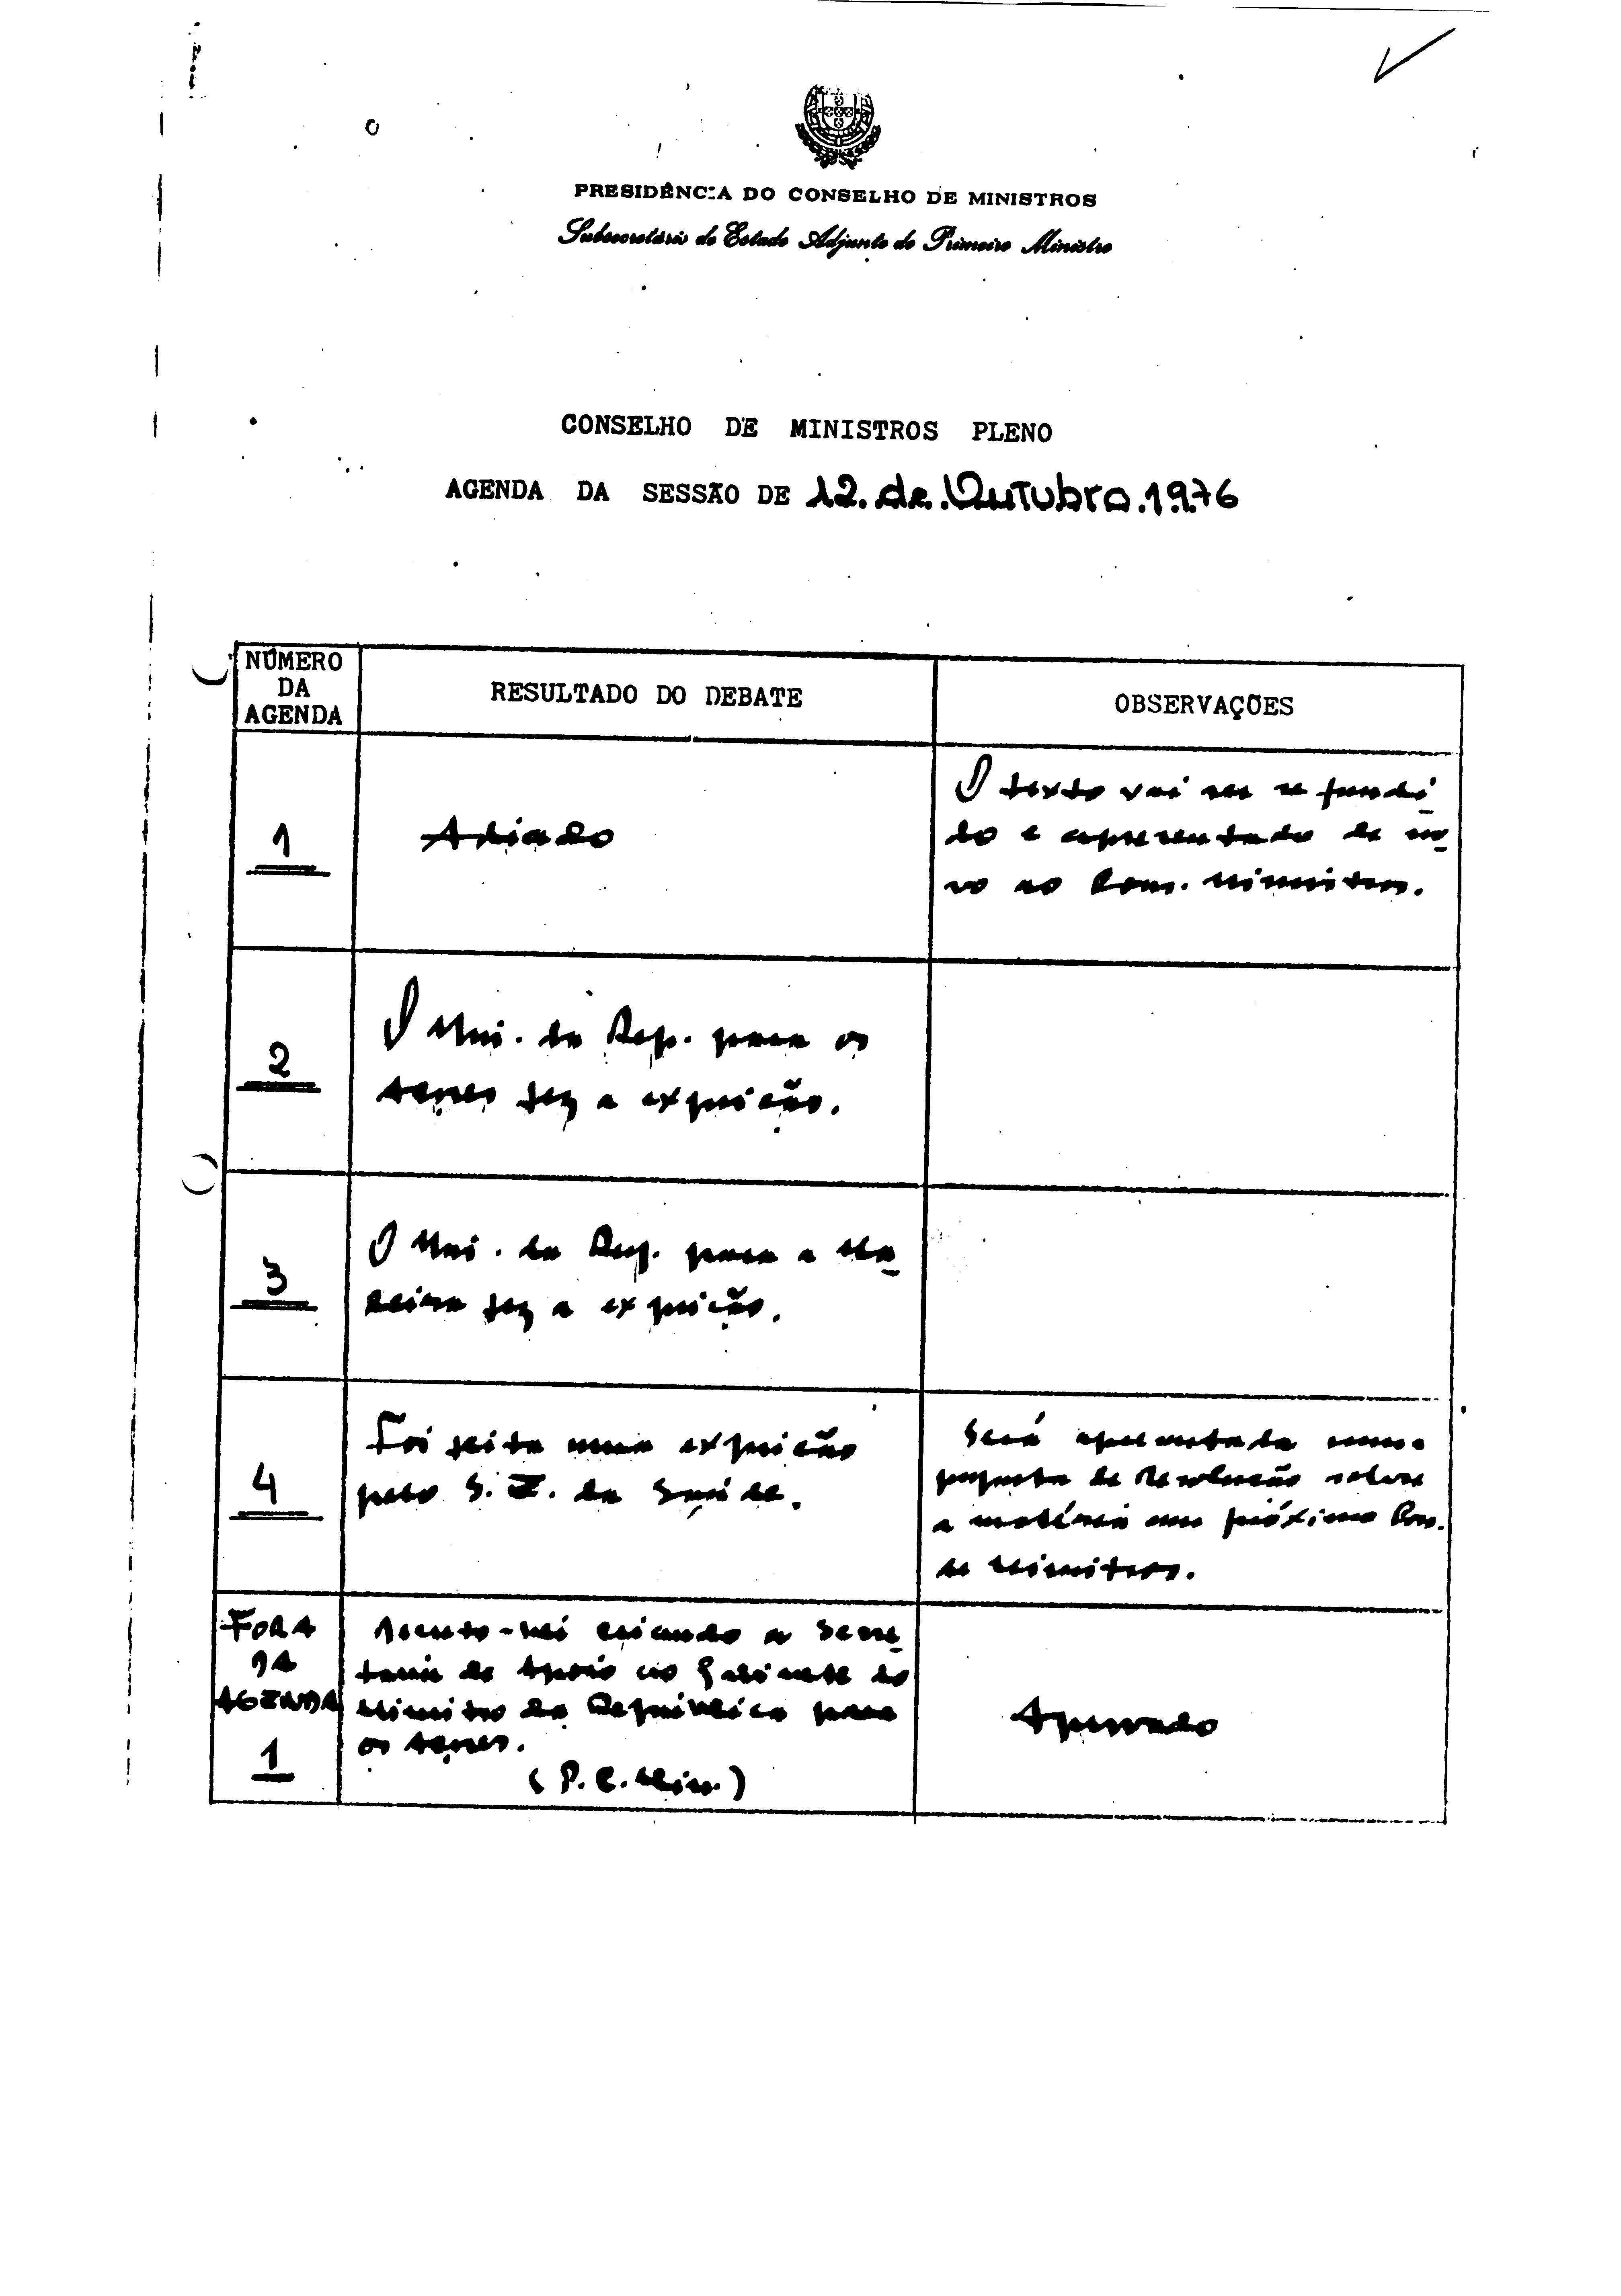 PRESIDÊNCIA DO CONSELHO DE MINISTROS
Subsecretário de Estado Adjunto do Primeiro Ministro
CONSELHO DE MINISTROS PLENO
AGENDA DA SESSÃO DE 12.de.Outubro.1976
NÚMERO
DA
AGENDA
RESULTADO DO DEBATE
OBSERVAÇÕES
1
Adiado
O texto vai ser refundi-
do e apresentado de no-
vo ao Cons. Ministros.
2
O Min. da Rep. para os
Açores fez a exposição.
3
O Min. da Rep. para a Ma-
deira fez a exposição.
4
Foi feita uma exposição
pelo S. E. da Saúde.
Será apresentada uma
proposta de Resolução sobre
a matéria num próximo Con.
de Ministros.
FORA
DA
AGENDA
1
Decreto-Lei criando a Secre-
taria de Apoio ao Gabinete do
Ministro da República para
os Açores.
(P.C.Min.)
Aprovado